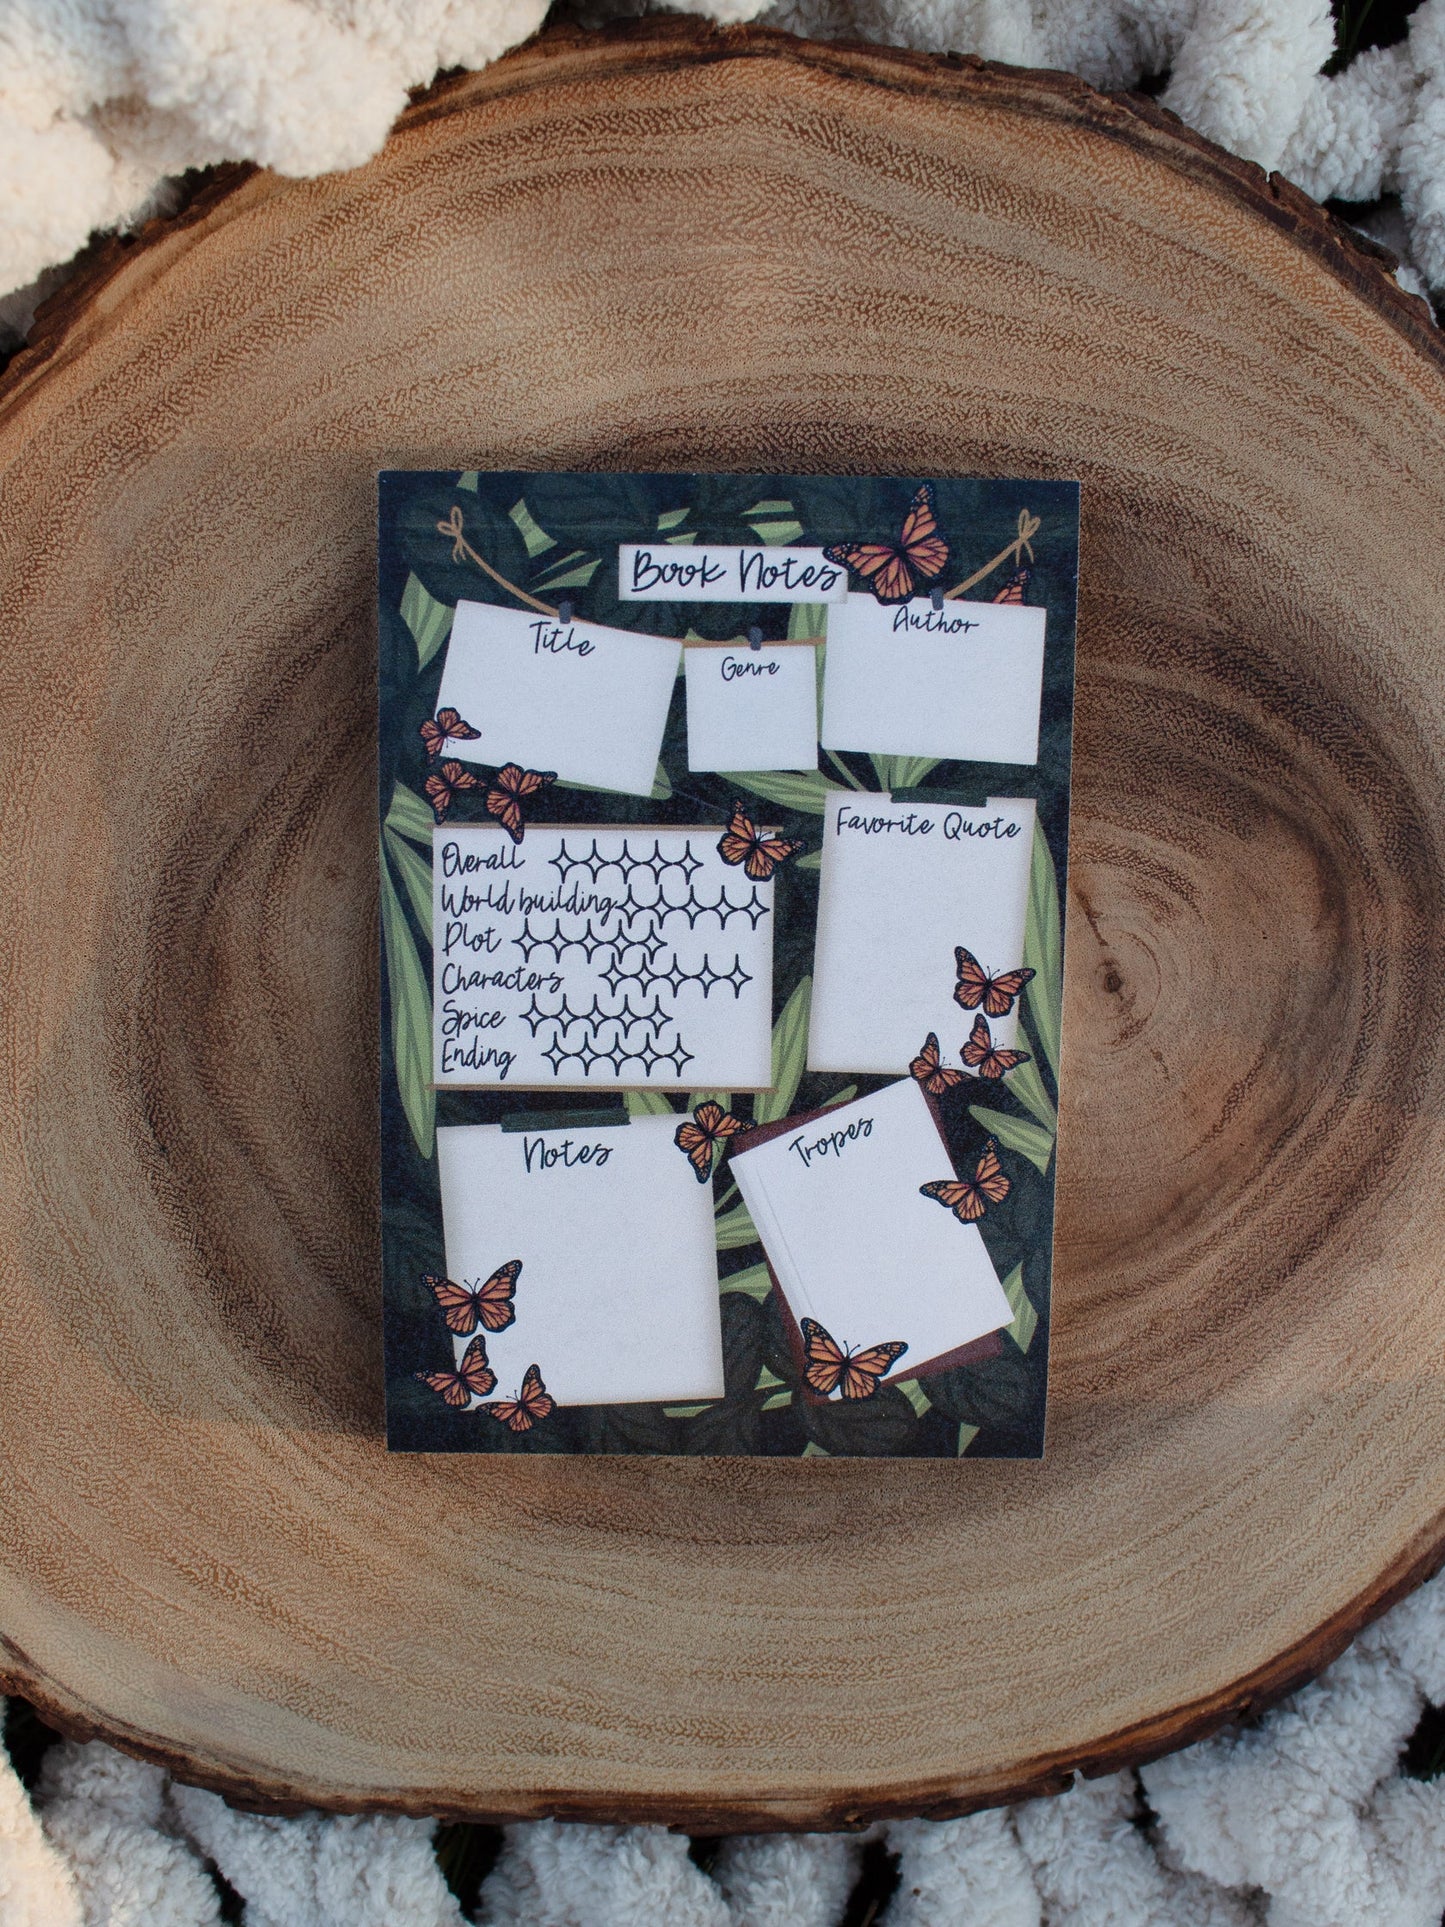 Book Notes
Title
Genre
Author
Overall
World building
Plot
Characters
Spice
Ending
Favorite Quote
Notes
Tropes